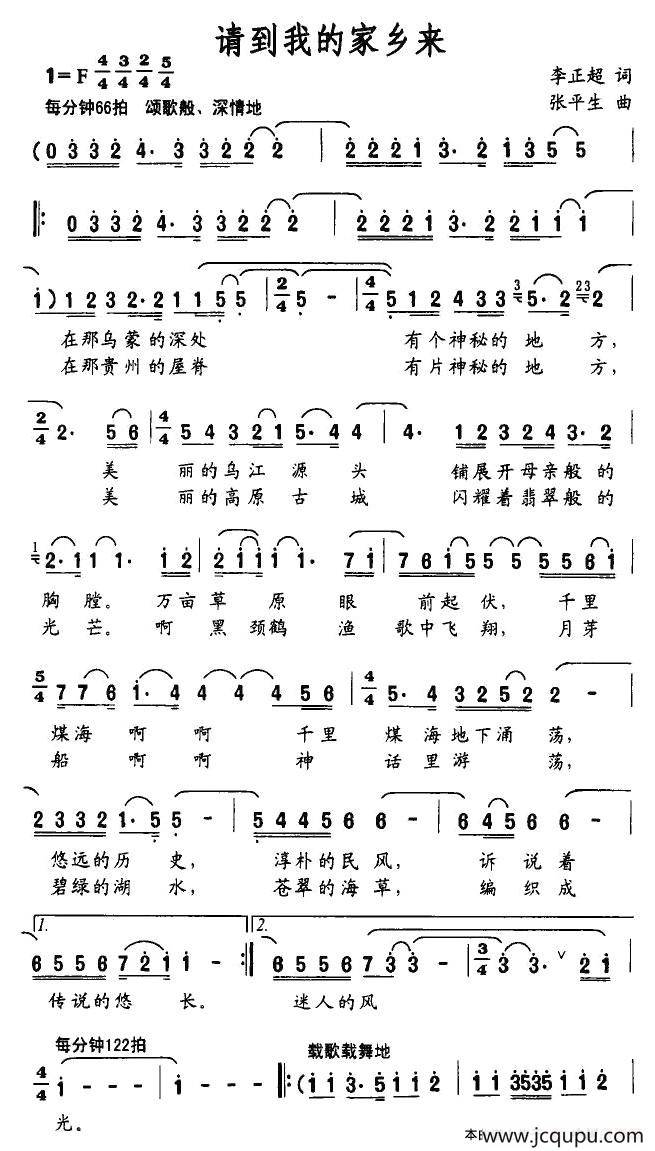 请到我的家乡来
1=F 4/4 3/4 2/4 5/4
李正超 词
每分钟66拍 颂歌般、深情地
张平生 曲
(0 3 3 2 4· 3 3 3 2 2 2 | 2 2 2 1 3· 2 1 3 5 5 |
‖: 0 3 3 2 4· 3 3 3 2 2 2 | 2 2 2 1 3· 2 2 1 1 1 |
1) 1 2 3 2·2 1 1 5 5 | 2/4 5 - | 4/4 5 1 2 4 3 3 3 5·2 23 2 |
在那乌蒙的深处 有个神秘的地方,
在那贵州的屋脊 有片神秘的地方,
2/4 2· 5 6 | 4/4 5 4 3 2 1 5·4 4 | 4· 1 2 3 2 4 3·2 |
美 丽的乌江源头 铺展开母亲般的
美 丽的高原古城 闪耀着翡翠般的
1 2·1 1 1· 1 2 | 2 1 1 1· 7 1 | 7 6 1 5 5 5 5 5 6 1 |
胸膛。 万亩草原眼 前起伏, 千里
光芒。 啊黑颈鹤渔 歌中飞翔, 月芽
5/4 7 7 6 1·4 4 4 4 5 6 | 4/4 5·4 3 2 5 2 2 - |
煤海啊啊 千里煤海地下涌荡,
船啊啊 神话里游荡,
2 3 3 2 1·5 5 - | 5 4 4 5 6 6 - | 6 4 5 6 6 - |
悠远的历史, 淳朴的民风, 诉说着
碧绿的湖水, 苍翠的海草, 编织成
1. 2.
6 5 5 6 7 2 1 1 - :‖ 6 5 5 6 7 3 3 - | 3/4 3 3· ∨ 2 1 |
传说的悠长。 迷人的风
每分钟122拍 载歌载舞地
4/4 1 - - - | 1 - - - ‖: (1 1 3·5 1 1 2 | 1 1 3535 1 1 2 |
光。
www.jcqupu.com